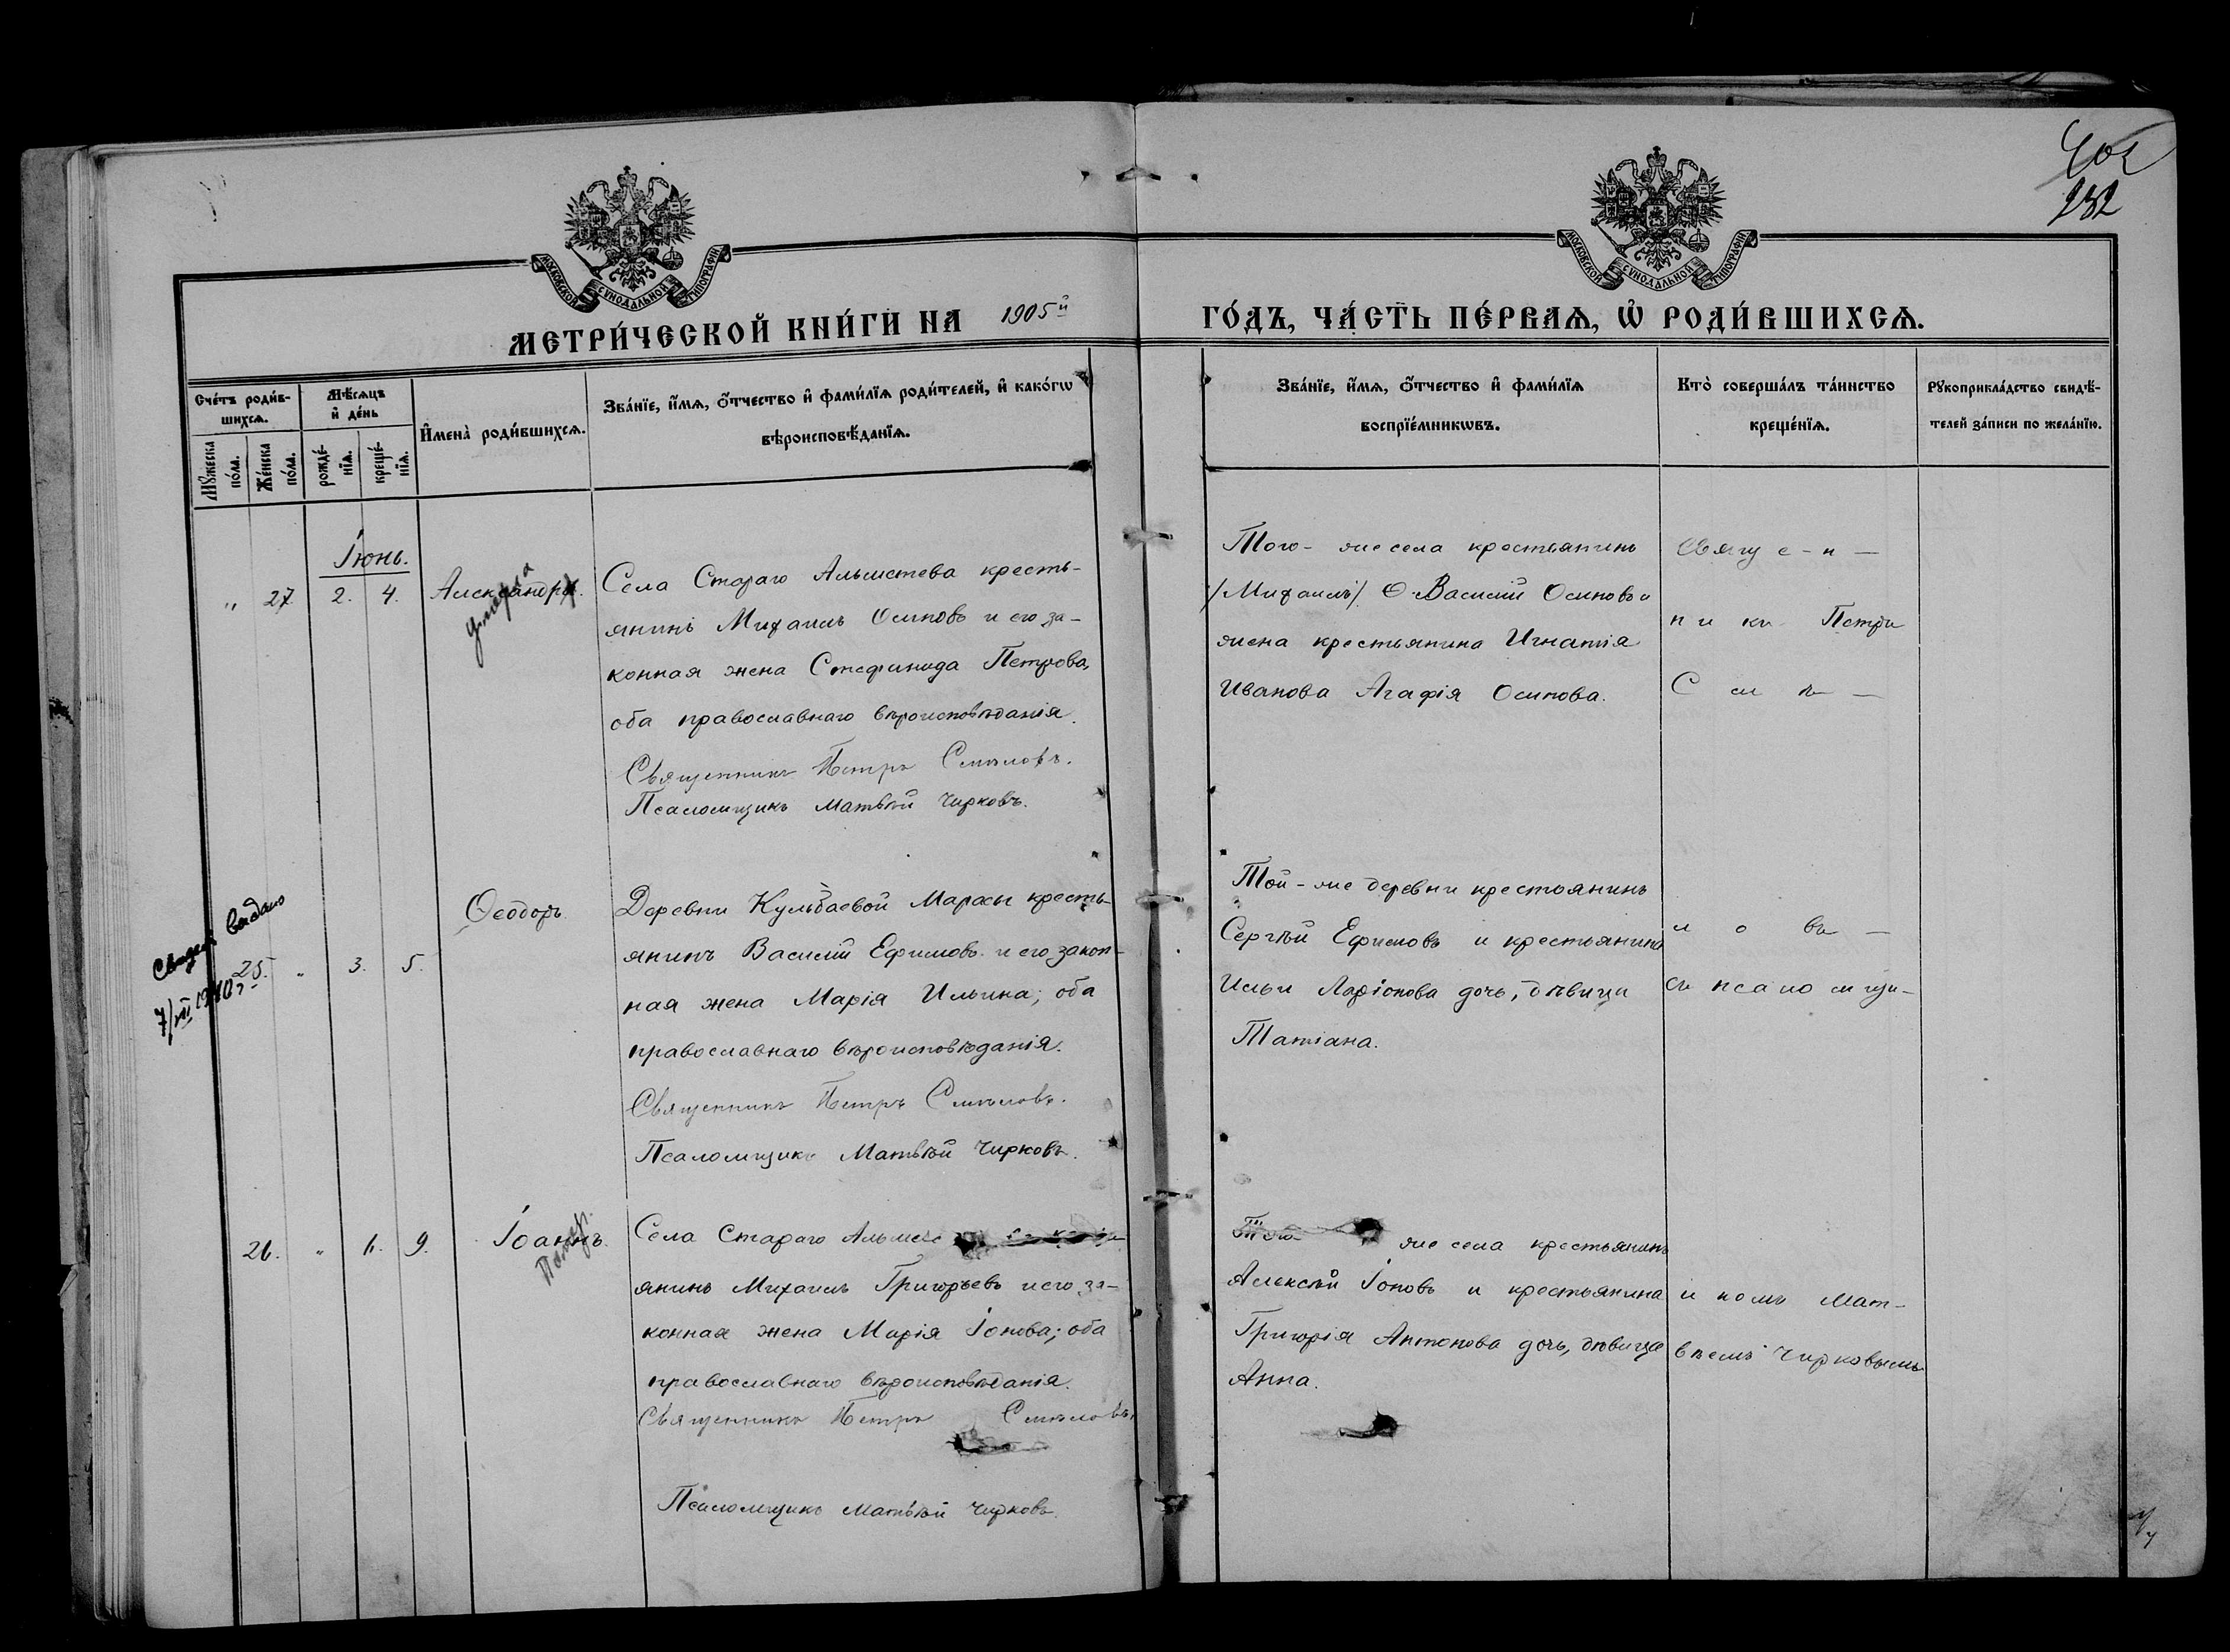 232
МОСКОВСКОЙ СѴНОДАЛЬНОЙ ТИПОГРАФІИ
МОСКОВСКОЙ СѴНОДАЛЬНОЙ ТИПОГРАФІИ
МЕТРИ́ЧЕСКОЙ КНИ́ГИ НА 1905й ГО́ДЪ, ЧА́СТЬ ПЕ́РВАѦ, Ѡ҆ РОДИ́ВШИХСѦ.
Сче́тъ роди́в-
шихсѧ.
Мꙋ́жеска
по́ла.
Же́нска
по́ла.
Мѣ́сѧцъ
и҆ де́нь
рожде́-
нїѧ.
креще́-
нїѧ.
И҆мена̀ роди́вшихсѧ.
Зва́нїе, и҆́мѧ, ѻ҆́тчество и҆ фами́лїѧ роди́телей, и҆ како́гѡ
вѣроисповѣ́данїѧ.
Зва́нїе, и҆́мѧ, ѻ҆́тчество и҆ фами́лїѧ
воспрїе́мникѡвъ.
Кто̀ соверша́лъ та́инство
креще́нїѧ.
Рꙋкоприкла́дство свидѣ́-
телей за́писи по жела́нїю.
Іюнь.
„ 27. 2. 4. Александра.
умерла
Села Стараго Альметева кресть-
янинъ Михаилъ Осиповъ и его за-
конная жена Стефанида Петрова,
оба православнаго вѣроисповѣданія.
Священникъ Петръ Смѣловъ.
Псаломщикъ Матвѣй Чирковъ.
Того-же села крестьянинъ
/Михаилъ/ Василій Осиповъ и
жена крестьянина Игнатія
Иванова Агафія Осипова.
Свяще-н-
никъ Петръ
С м ѣ-
выдано
25. „ 3. 5. Ѳеодоръ
Деревни Кульбаевой Марасы кресть-
янинъ Василій Ефимовъ и его закон-
ная жена Марія Ильина; оба
православнаго вѣроисповѣданія.
Священникъ Петръ Смѣловъ.
Псаломщикъ Матвѣй Чирковъ.
Той-же деревни крестьянинъ
Сергѣй Ефимовъ и крестьянина
Ильи Ларіонова дочь, дѣвица
Татіана.
л о въ -
съ псаломщи-
26. „ 6. 9. Іоаннъ.
Села Стараго
янинъ Михаилъ Григорьевъ и его за-
конная жена Марія Іонова; оба
православнаго вѣроисповѣданія.
Священникъ Петръ Смѣловъ.
Псаломщикъ Матвѣй Чирковъ.
же села крестьянинъ
Алексѣй Іоновъ и крестьянина
Григорія Антонова дочь, дѣвица
Анна.
комъ Мат-
вѣемъ Чирковымъ